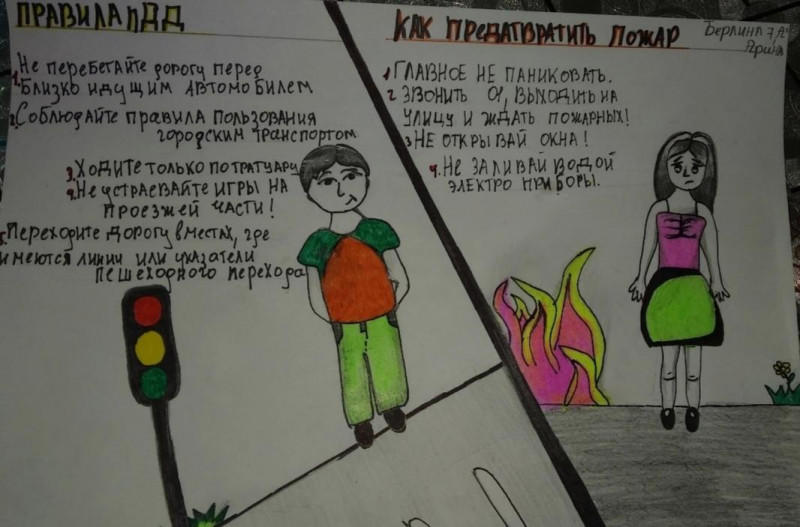 ПРАВИЛА ПДД
1. Не перебегайте дорогу перед
близко идущим автомобилем
2. Соблюдайте правила пользования
городским транспортом
3. Ходите только по тратуару
4. Не устраевайте игры на
проезжей части!
5. Переходите дорогу в местах, где
имеются линии или указатели
пешеходного перехода
КАК ПРЕДАТВРАТИТЬ ПОЖАР
Берлина 7"А"
Ярина
1 ГЛАВНОЕ НЕ ПАНИКОВАТЬ.
2 ЗВОНИТЬ 01, ВЫХОДИТЬ НА
УЛИЦУ И ЖДАТЬ ПОЖАРНЫХ!
3 НЕ ОТКРЫВАЙ ОКНА!
4. НЕ ЗАЛИВАЙ ВОДОЙ
ЭЛЕКТРО ПРИБОРЫ.